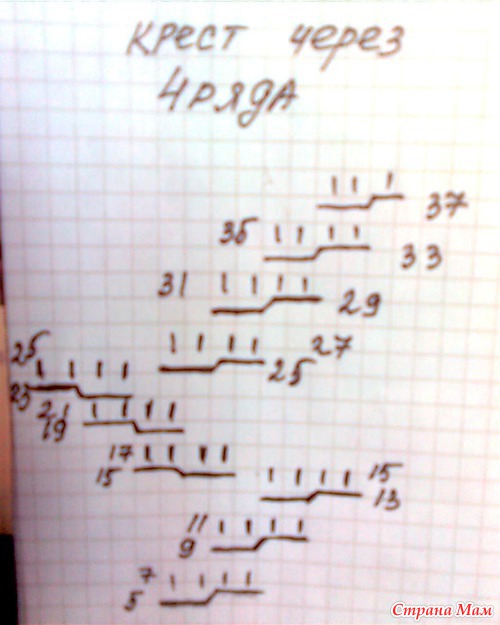 КРЕСТ через
4 РЯДА
37
35
33
31
29
27
25
25
23
21
19
17
15
15
13
11
9
7
5
Страна Мам